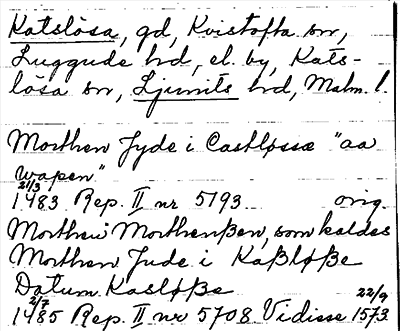 Katslösa, gd, Kvistofta sn,
Luggude hd, el. by, Kats-
lösa sn, Ljunits hd, Malm. l.
Morthen Jyde i Castløssæ "aa
wapen"
21/3
1483 Rep. II nr 5193 orig.
Morthen Morthenßen, som kaldes
Morthen Jude i Kaßløße
Datum Kasløße
2/7 22/9
1485 Rep. II nr 5708 Vidisse 1573